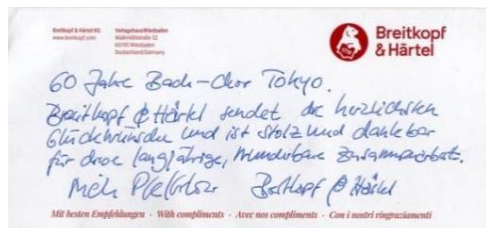 Breitkopf & Härtel KG
www.breitkopf.com
Verlagshaus Wiesbaden
Walkmühlstraße 52
65195 Wiesbaden
Deutschland/Germany
Breitkopf
& Härtel
60 Jahre Bach-Chor Tokyo.
Breitkopf & Härtel sendet die herzlichsten
Glückwünsche und ist stolz und dankbar
für diese langjährige, wunderbare Zusammenarbeit.
Breitkopf & Härtel
Mit besten Empfehlungen · With compliments · Avec nos compliments · Con i nostri ringraziamenti